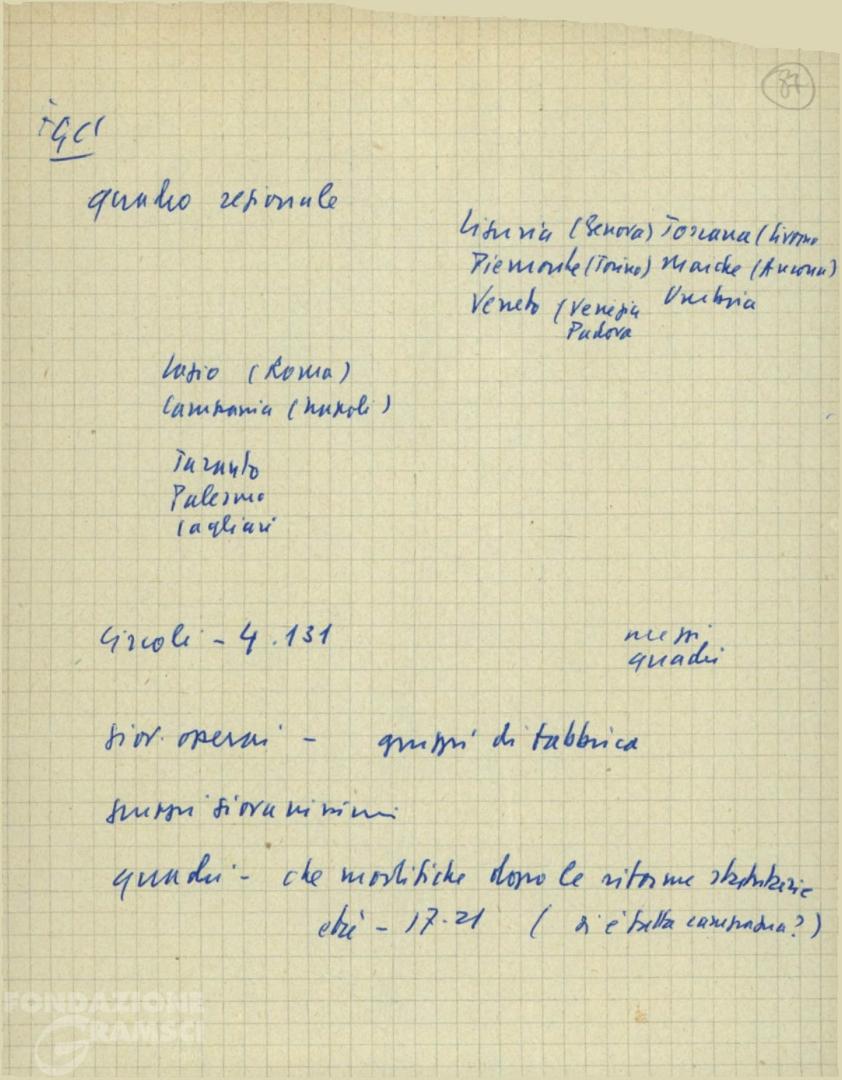 87
FGCI
quadro regionale
Liguria (Genova) Toscana (Livorno
Piemonte (Torino) Marche (Ancona)
Veneto (Venezia Umbria
Padova
Lazio (Roma)
Campania (Napoli)
Taranto
Palermo
Cagliari
Circoli - 4.131
mezzi
quadri
giov. operai - gruppi di fabbrica
gruppi giovanissimi
quadri - che modifiche dopo le riforme statutarie
età - 17-21 ( si è fatta campagna?)
FONDAZIONE
GRAMSCI